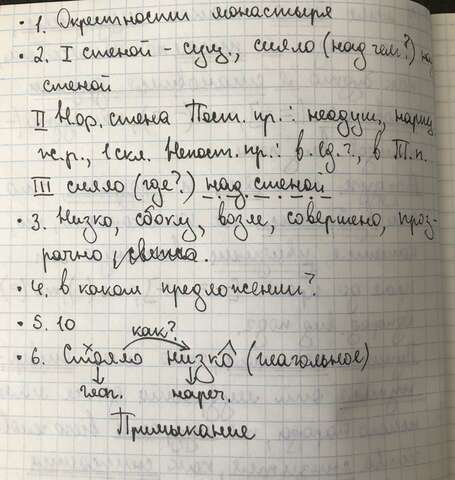 • 1. Окрестности монастыря
• 2. I стеной - сущ., сияло (над чем?) над
стеной
II Нор. стена Пост. пр.: неодуш., нариц.
ж.р., 1 скл. Непост. пр.: в ед.ч., в Т.п.
III сияло (где?) над стеной
• 3. Низко, сбоку, возле, совершено, проз-
рачно,
• 4. в каком предложении?
• 5. 10
как?
• 6. Стояло низко (глагольное)
глаг. нареч.
Примыкание